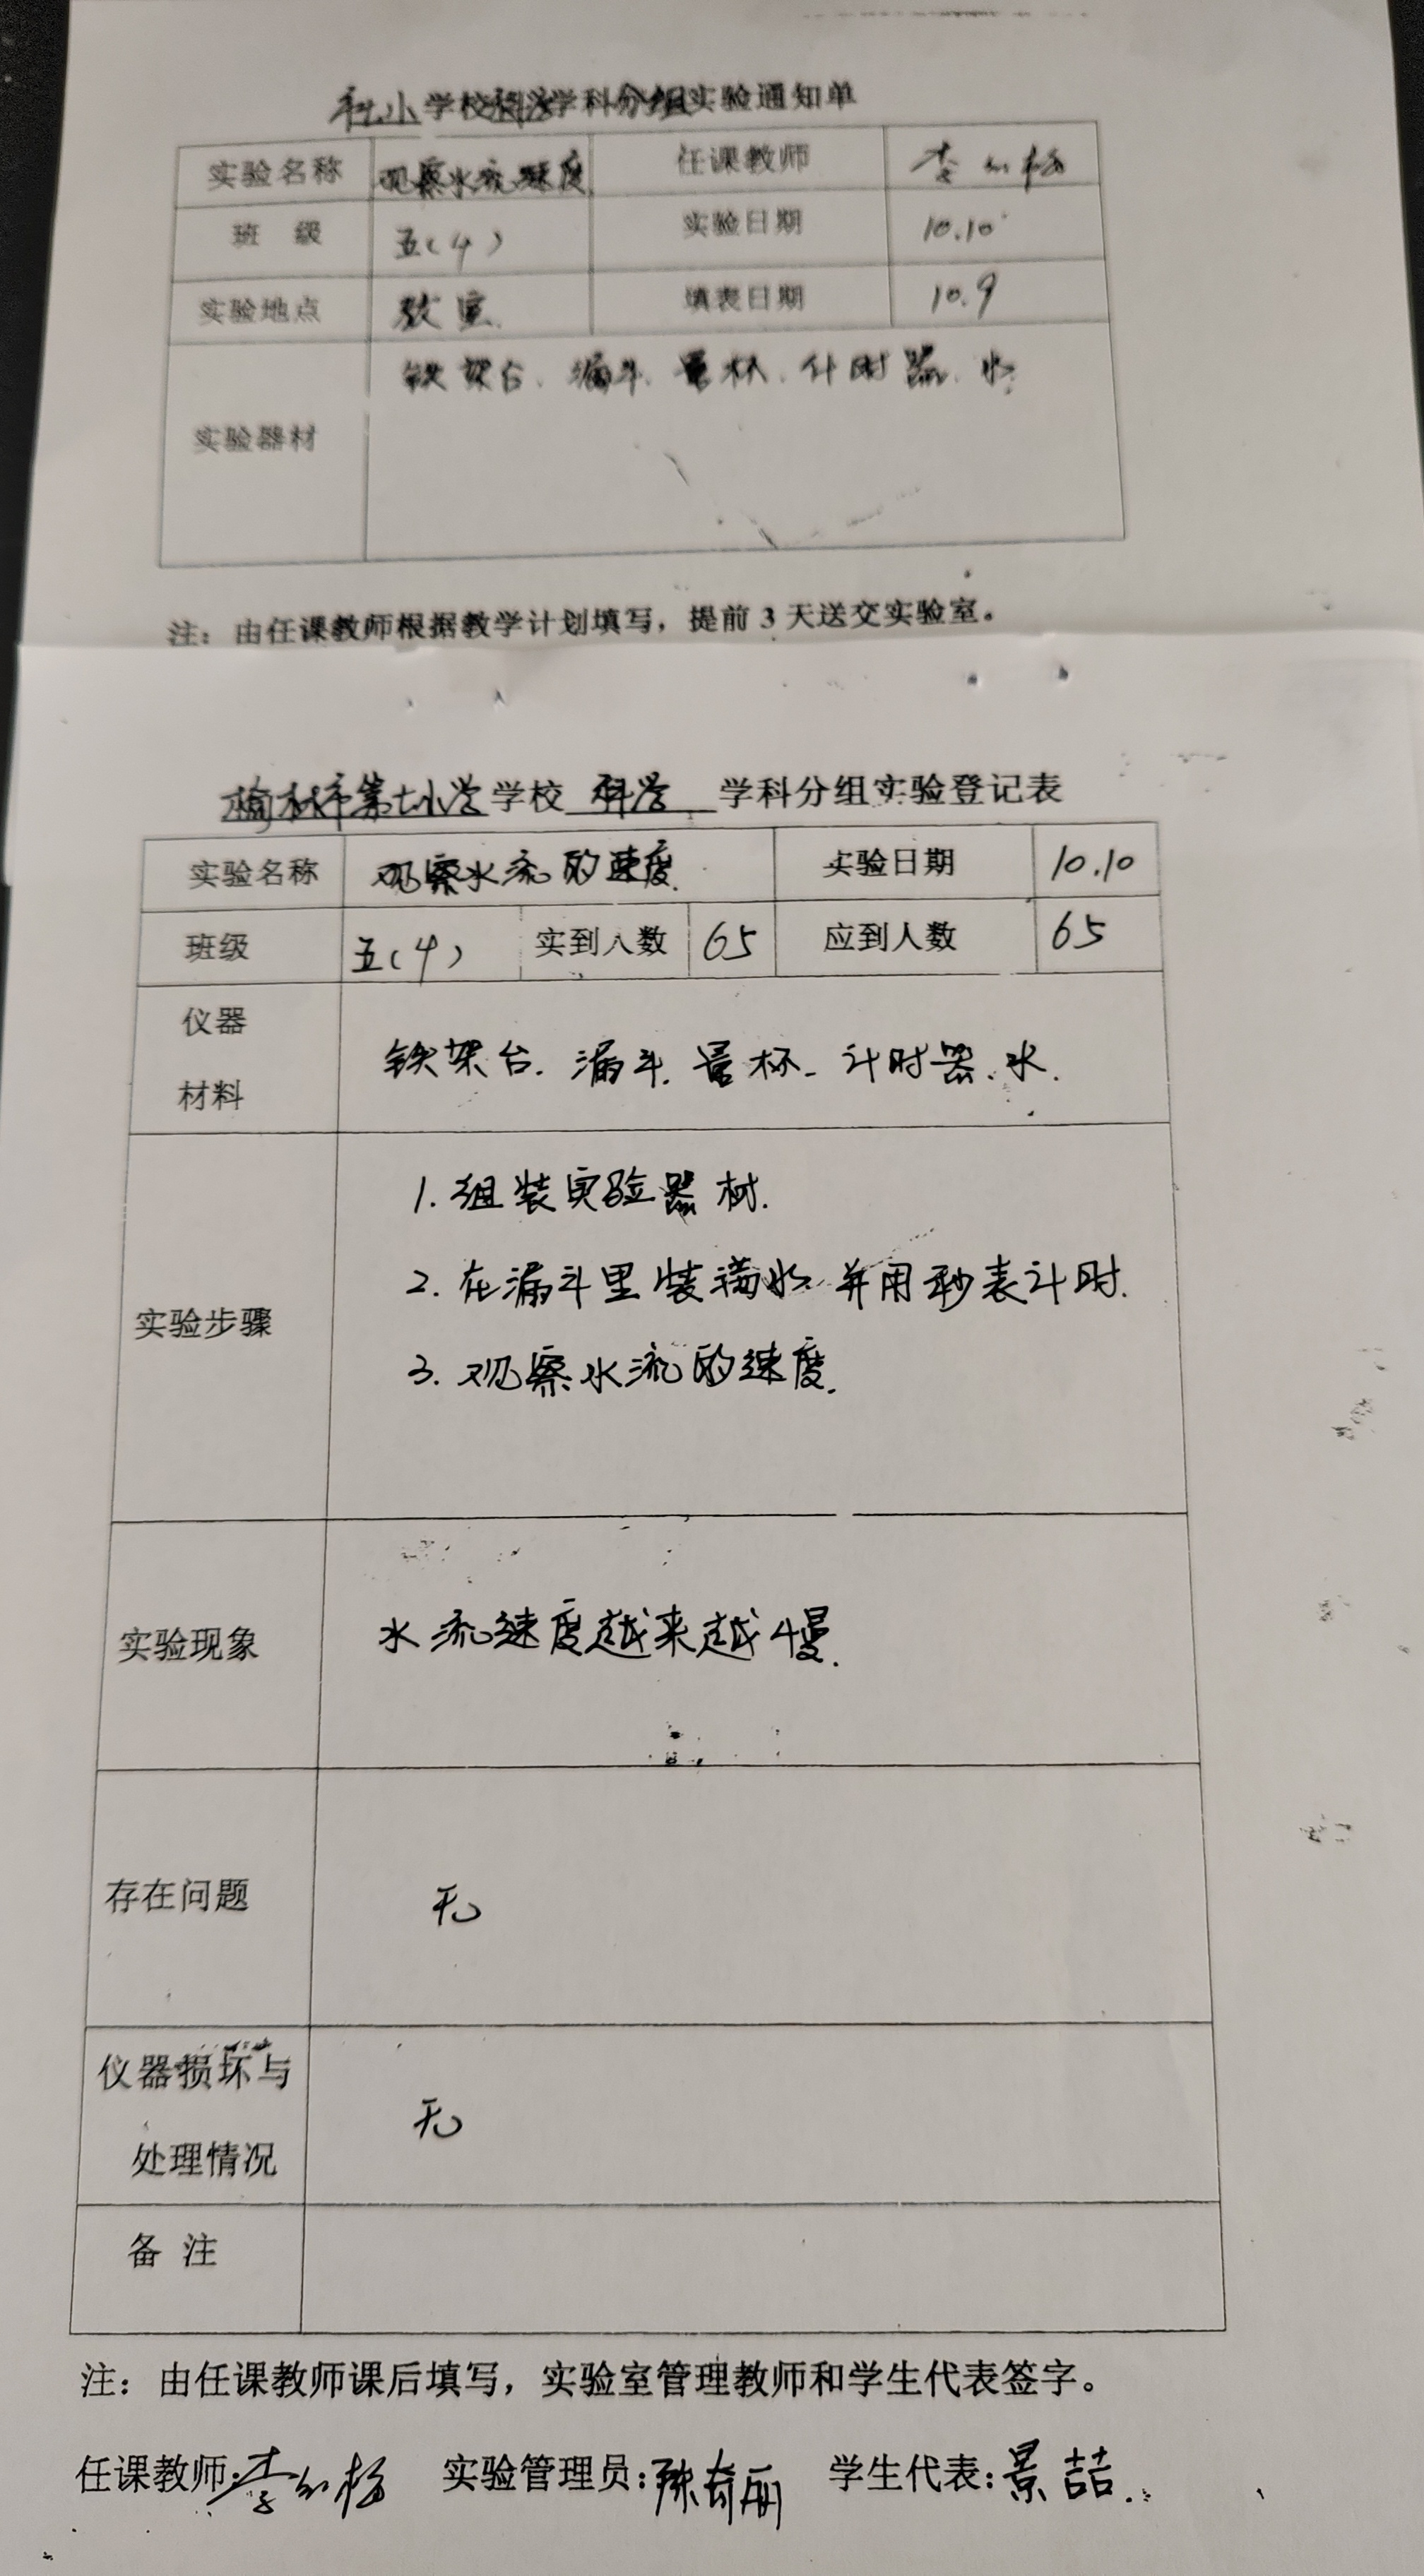 七小学校科学学科分组实验通知单
实验名称 观察水流速度 任课教师 李红梅
班 级 五(4) 实验日期 10.10
实验地点 教室. 填表日期 10.9
铁架台. 漏斗. 量杯. 计时器. 水.
实验器材
注：由任课教师根据教学计划填写，提前 3 天送交实验室。
榆林市第七小学学校 科学 学科分组实验登记表
实验名称 观察水流的速度. 实验日期 10.10
班级 五(4) 实到人数 65 应到人数 65
仪器
材料
铁架台. 漏斗. 量杯. 计时器. 水.
1. 组装实验器材.
2. 在漏斗里装满水 并用秒表计时.
实验步骤
3. 观察水流的速度.
实验现象 水流速度越来越慢.
存在问题 无
仪器损坏与
处理情况
无
备 注
注：由任课教师课后填写，实验室管理教师和学生代表签字。
任课教师:李红梅 实验管理员:陈奇丽 学生代表:景喆.